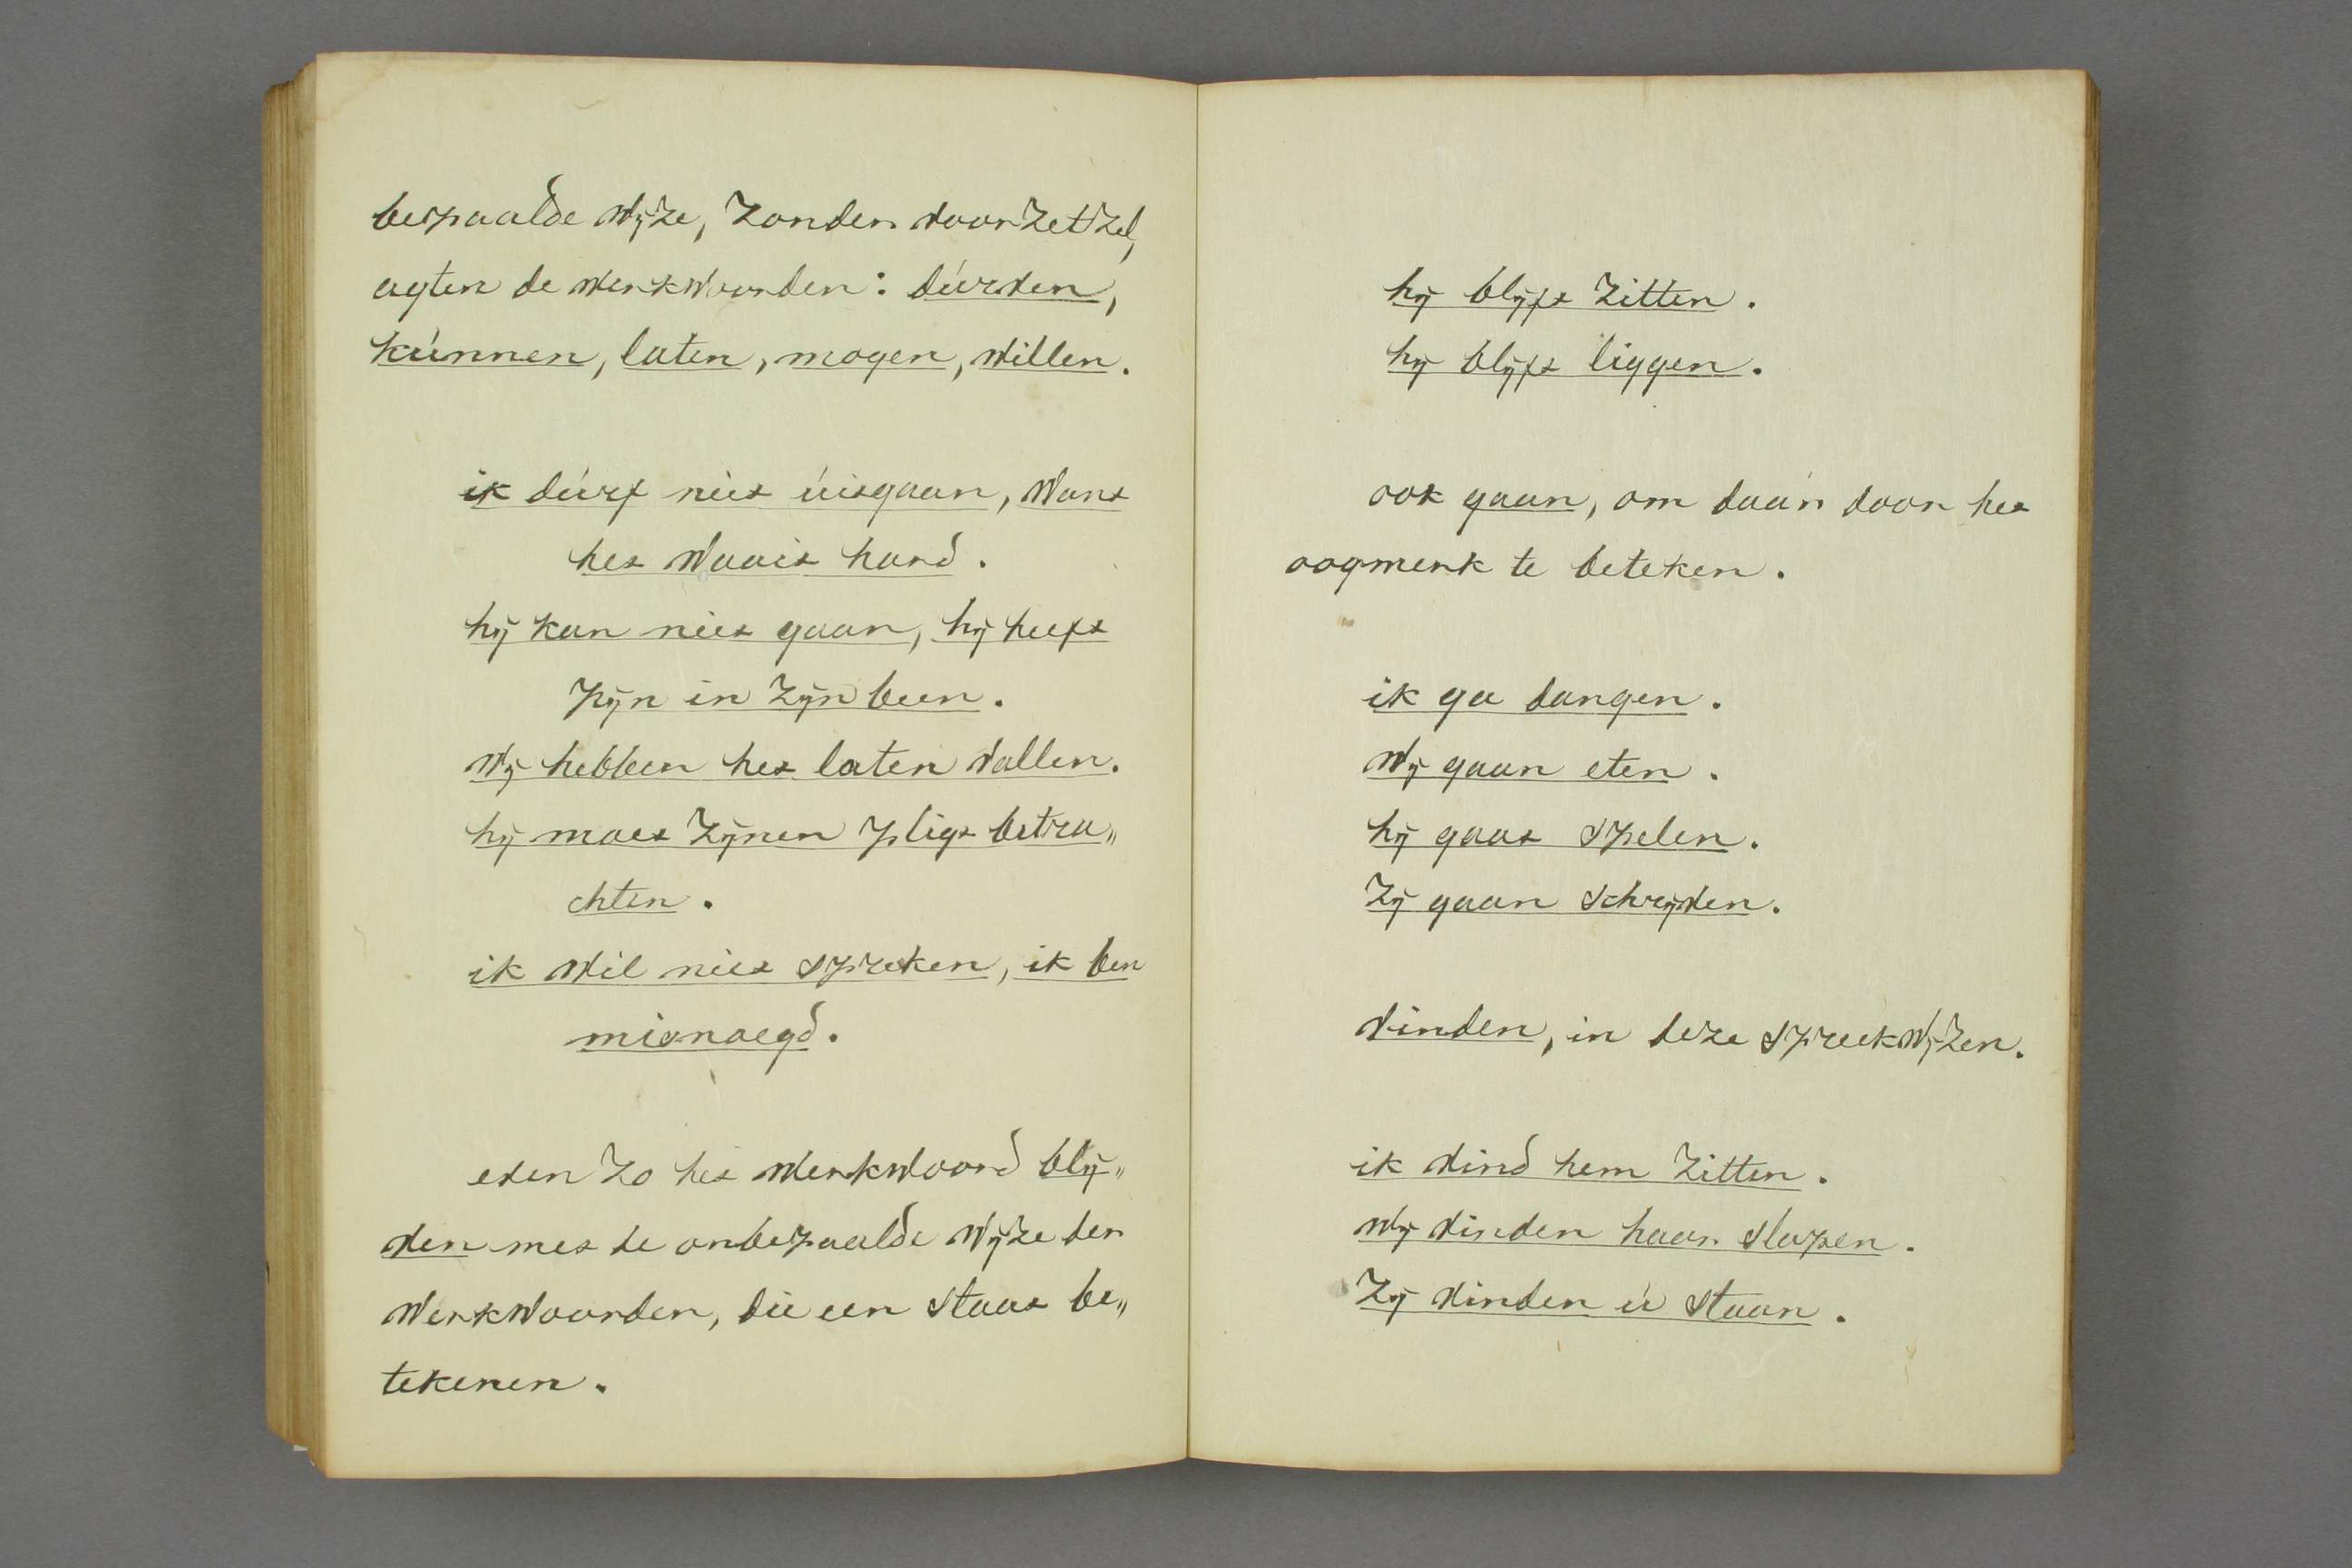 bepaalde wijze, zonder voorzetzel,
agter de werkwoorden: durven,
kunnen, laten, mogen, willen.
ik durf niet uitgaan, want
het waait hard.
hij kan niet gaan, hij heeft
pijn in zijn been.
wij hebben het laten vallen.
hij moet zijnen pligt betra„
chten.
ik wil niet spreken, ik ben
misnoegd.
even zo het werkwoord blij„
ven met de onbepaalde wijze der
werkwoorden, die een staat be„
tekenen.
hij blijft zitten.
hij blijft liggen.
ook gaan, om daar door het
oogmerk te beteken.
ik ga dangen.
wij gaan eten.
hij gaat spelen.
zij gaan schrijven.
vinden, in deze spreekwijzen.
ik vind hem zitten.
wij vinden haar slapen.
zij vinden u staan.